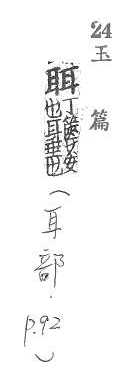 24
玉篇
聑丁篋切安
也耳垂也
(耳部．p.92)